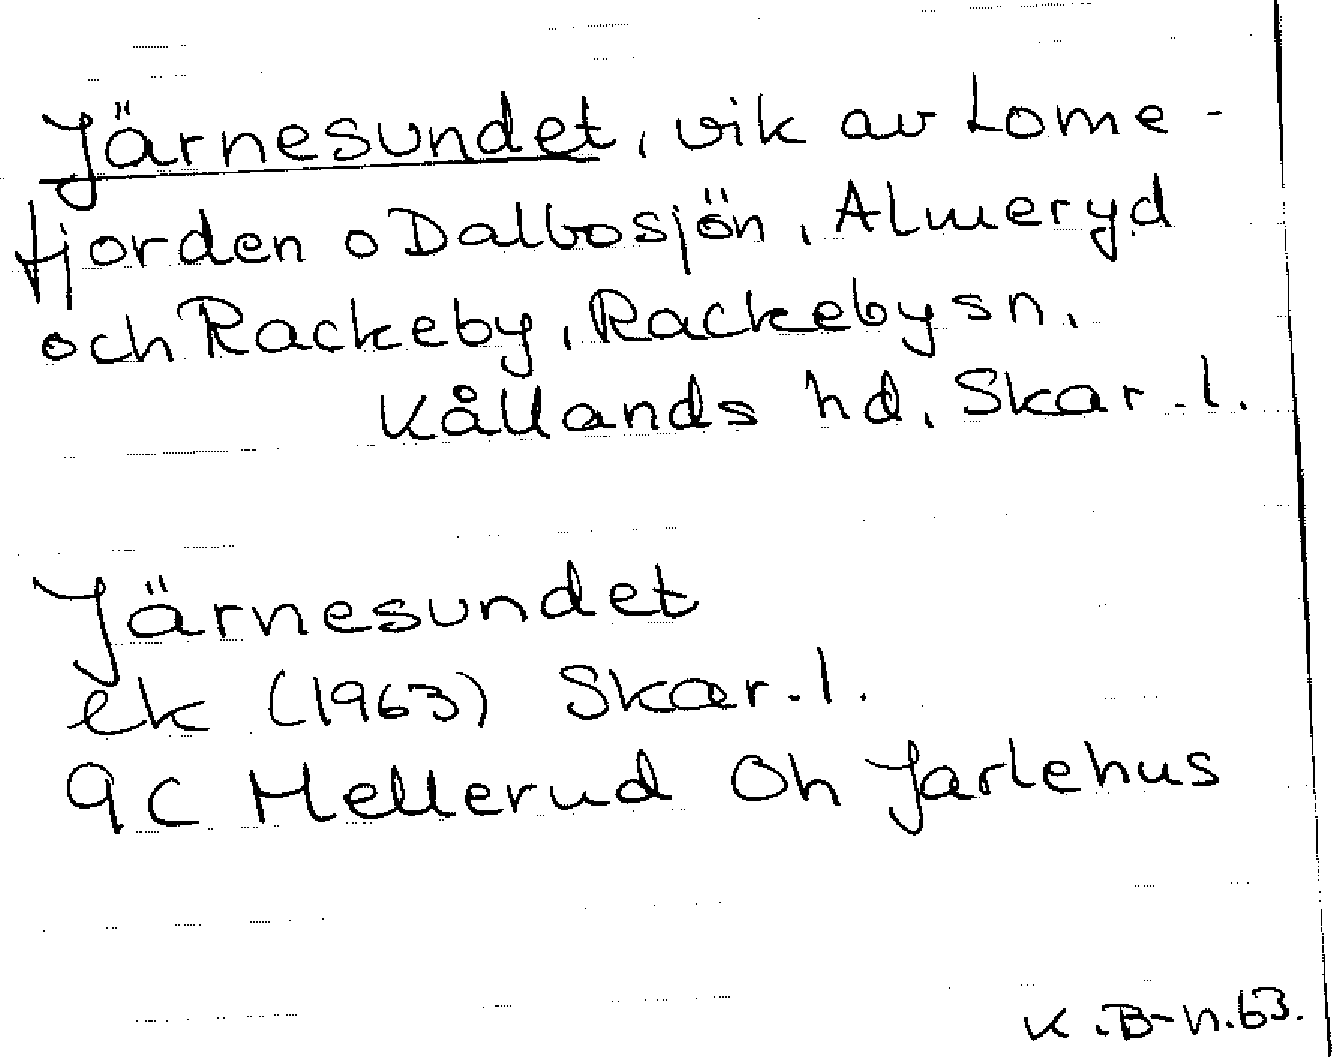 Järnesundet, vik av Lome-
fjorden o Dalbosjön, Almeryd
och Rackeby, Rackeby sn,
Kållands hd, Skar.l.
Järnesundet
ek (1963) Skar.l.
9C Mellerud Öh Jarlehus
K.B-n.63.